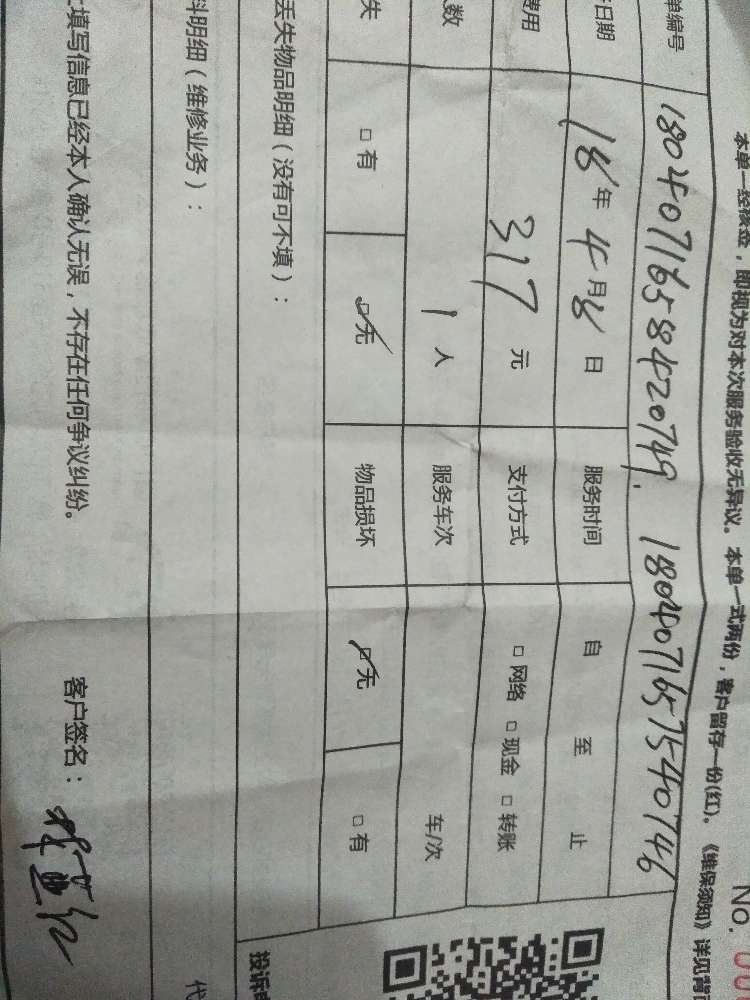 No. 00
本单一经恢签，即视为对本次服务验收无异议。本单一式两份，客户留存一份(红)。《维保须知》详见背
单编号 1804071658420749. 1804071657540746
日期 18年4月8日 服务时间 自 至 止
费用 317元 支付方式 □网络 □现金 □转账
数 1人 服务车次 车/次
失 □有 ☑无 物品损坏 ☑无 □有
丢失物品明细（没有可不填）：
料明细（维修业务）：
投诉
代
填写信息已经本人确认无误，不存在任何争议纠纷。 客户签名：